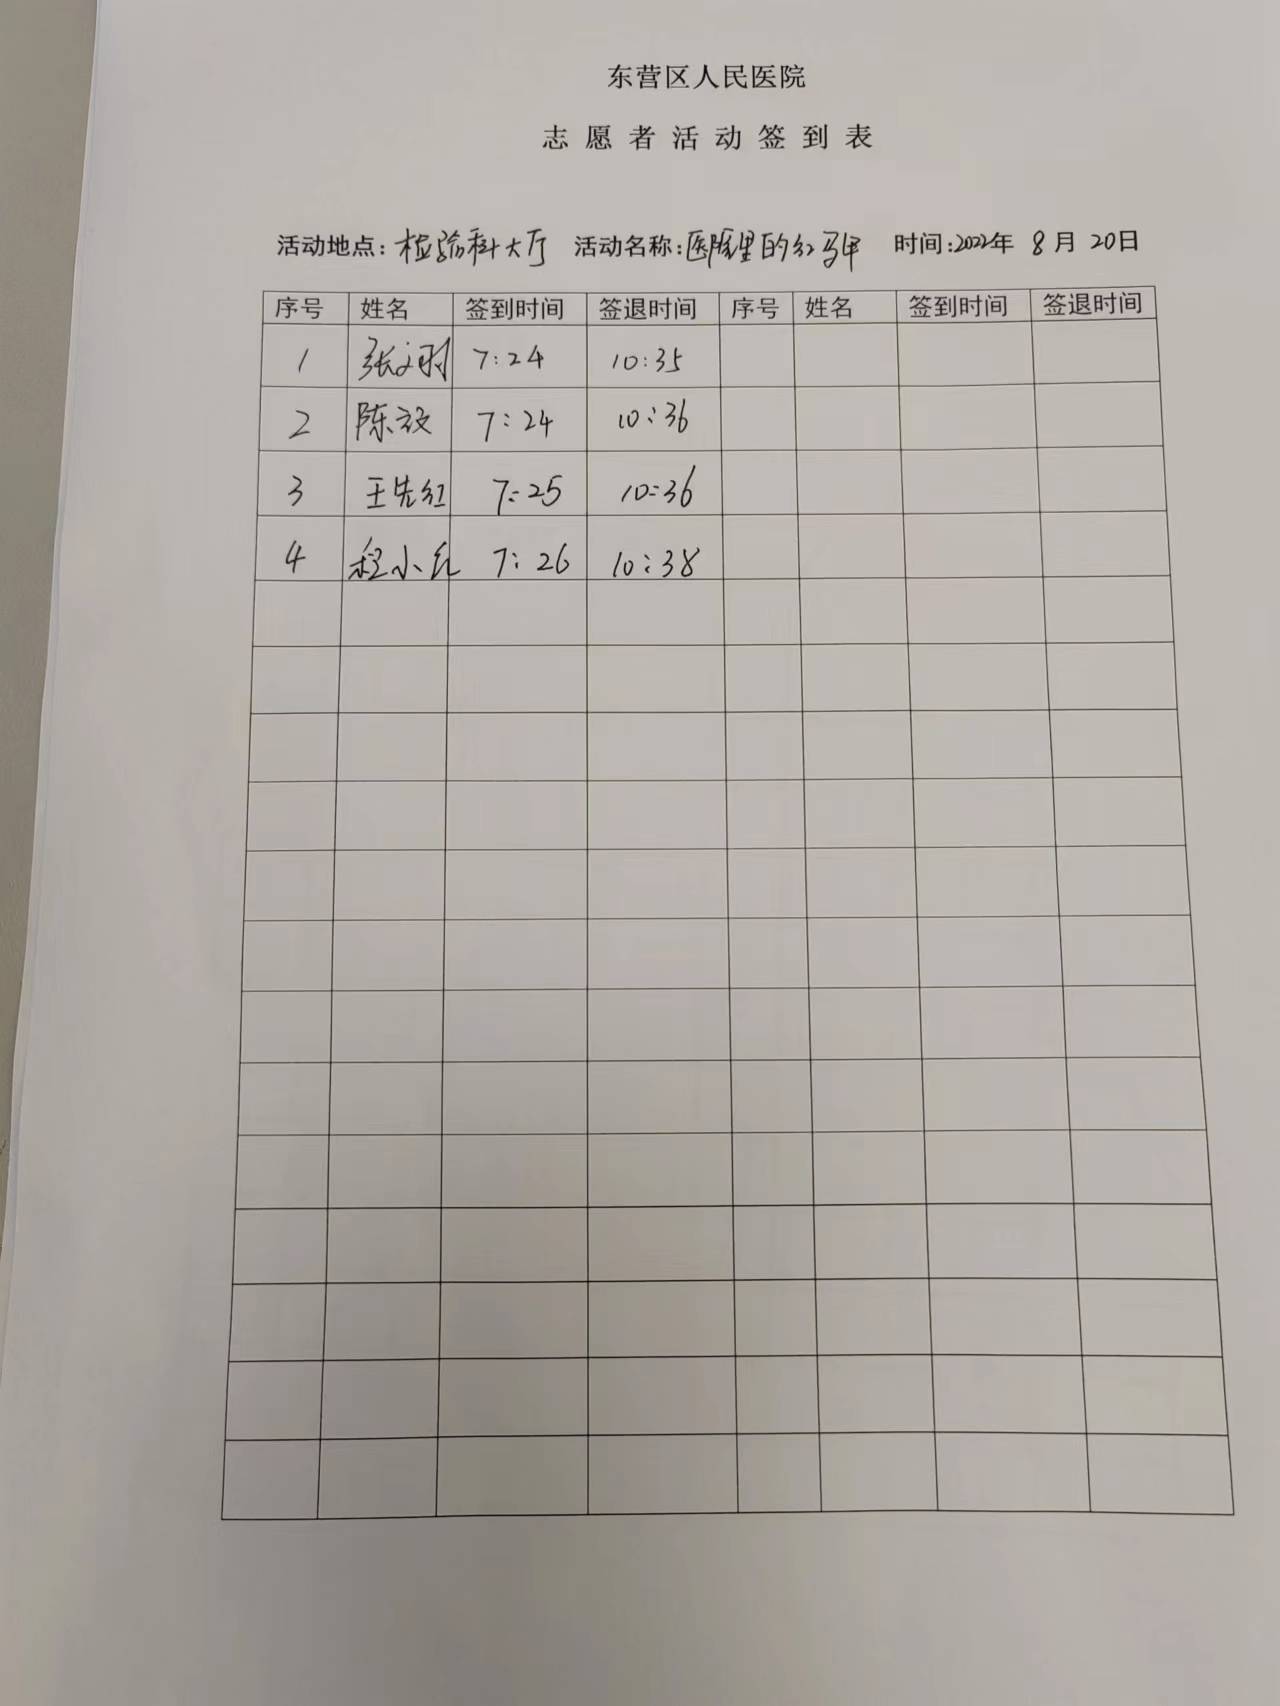 东营区人民医院
志愿者活动签到表
活动地点：检验科大厅 活动名称：医院里的红马甲 时间：2022年 8月 20日
序号 姓名 签到时间 签退时间 序号 姓名 签到时间 签退时间
1 张文 7:24 10:35
2 陈 7:24 10:36
3 王先红 7:25 10:36
4 程小 7:26 10:38